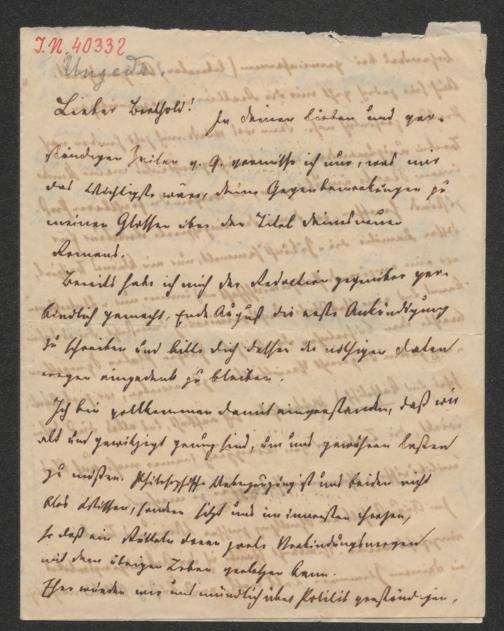 I.N. 40332
Ungedr.
Lieber Berthold!
In deinen lieben und ver-
ständigen Zeilen v. 9. vermisse ich nur, was mir
das Wichtigste wäre, deine Gegenbemerkungen zu
meinen Glossen über den Titel deines neuen
Romans.
Bereits habe ich mich der Redaction gegenüber ver-
bindlich gemacht, Ende August die erste Ankündigung
zu schreiben und bitte dich daher der nöthigen Daten
wegen eingedenk zu bleiben.
Ich bin vollkommen damit einverstanden, daß wir
alt und gewitzigt genug sind, um uns gewähren lassen
zu müssen. Philosophische Ueberzeugung ist uns beiden nicht
blos Wissen, sondern sitzt uns im innersten
so daß ein Rütteln daran Verbindungs
mit dem übrigen Leben verletzen kann.
Eher würden wir uns mündlich über Politik verständigen,